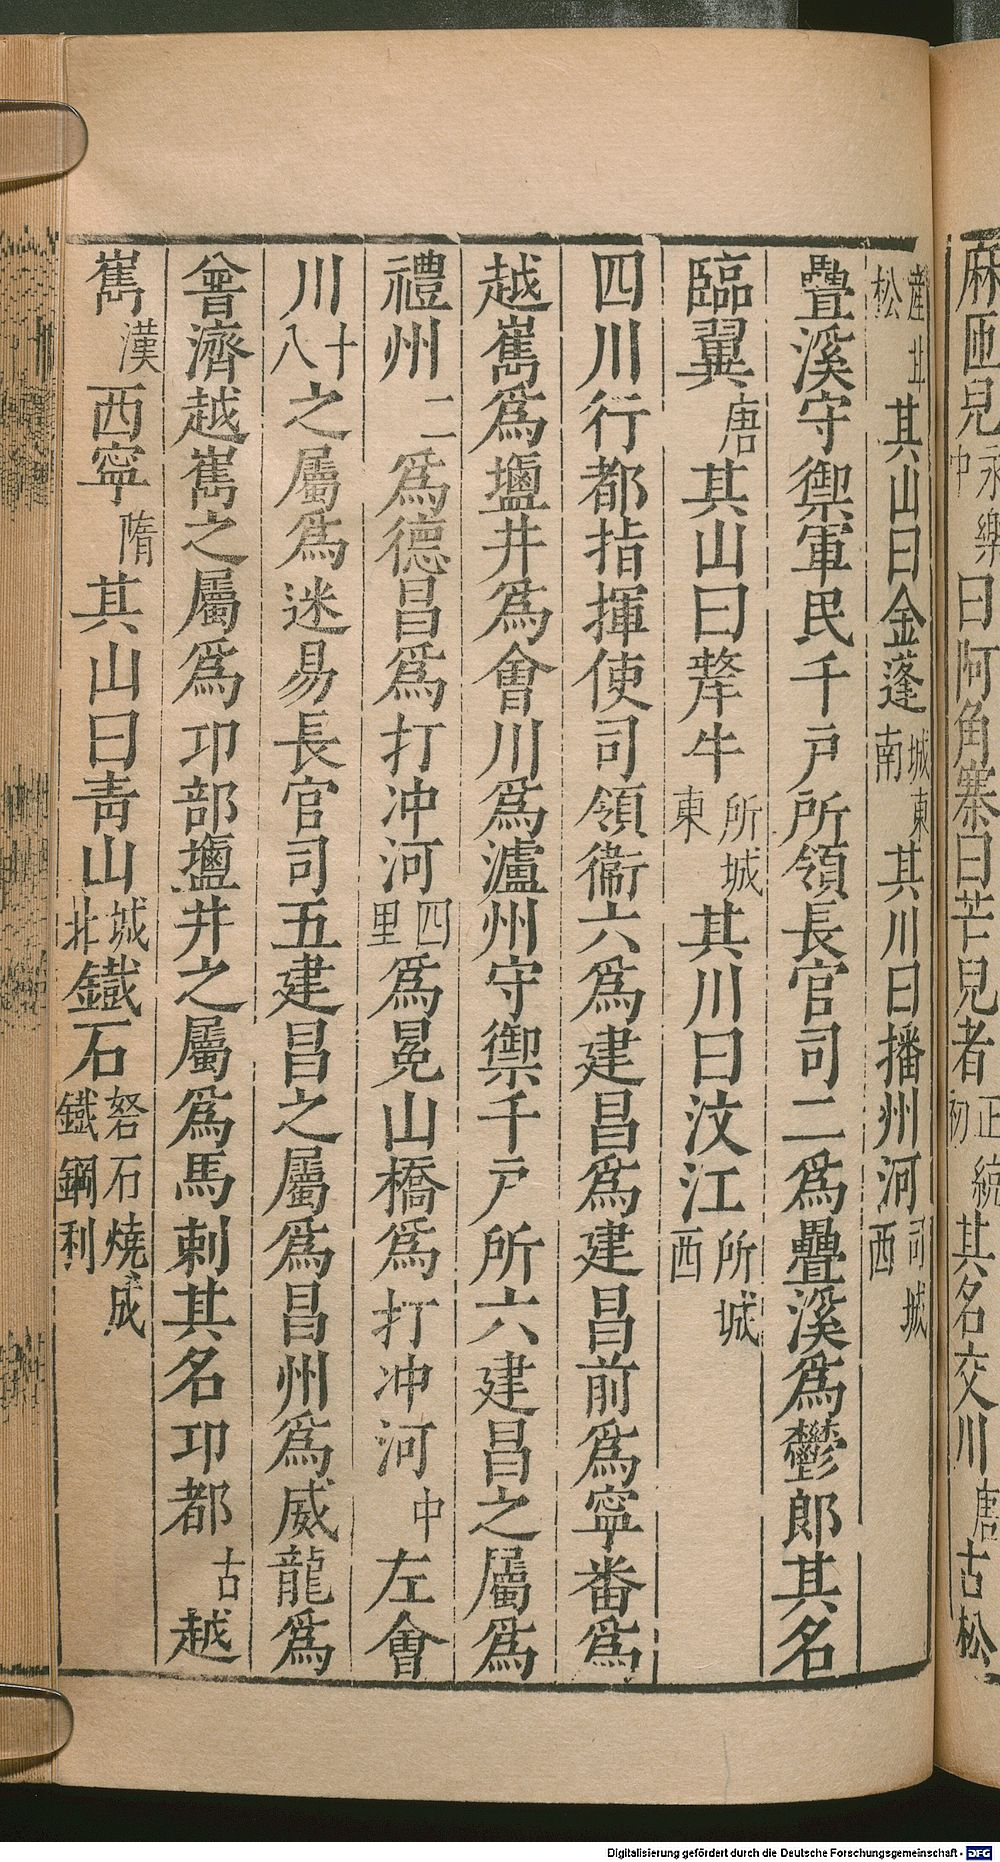 麻匝兒永樂中曰阿角寨曰芒兒者正統初其名交川唐古松
産北松其山曰金蓬城東南其川曰播州河司城西
疊溪守禦軍民千戶所領長官司二爲疊溪爲鬱郎其名
臨翼唐其山曰犛牛所城東其川曰汶江所城西
四川行都指揮使司領衞六爲建昌爲建昌前爲寧番爲
越嶲爲鹽井爲會川爲瀘州守禦千戶所六建昌之屬爲
禮州二爲德昌爲打冲河四里爲冕山橋爲打冲河中左會
川十八之屬爲迷易長官司五建昌之屬爲昌州爲威龍爲
普濟越嶲之屬爲邛部鹽井之屬爲馬刺其名邛都古越
嶲漢西寧隋其山曰靑山城北鐵石砮石燒成鐵鋼利
Digitalisierung gefördert durch die Deutsche Forschungsgemeinschaft - DFG